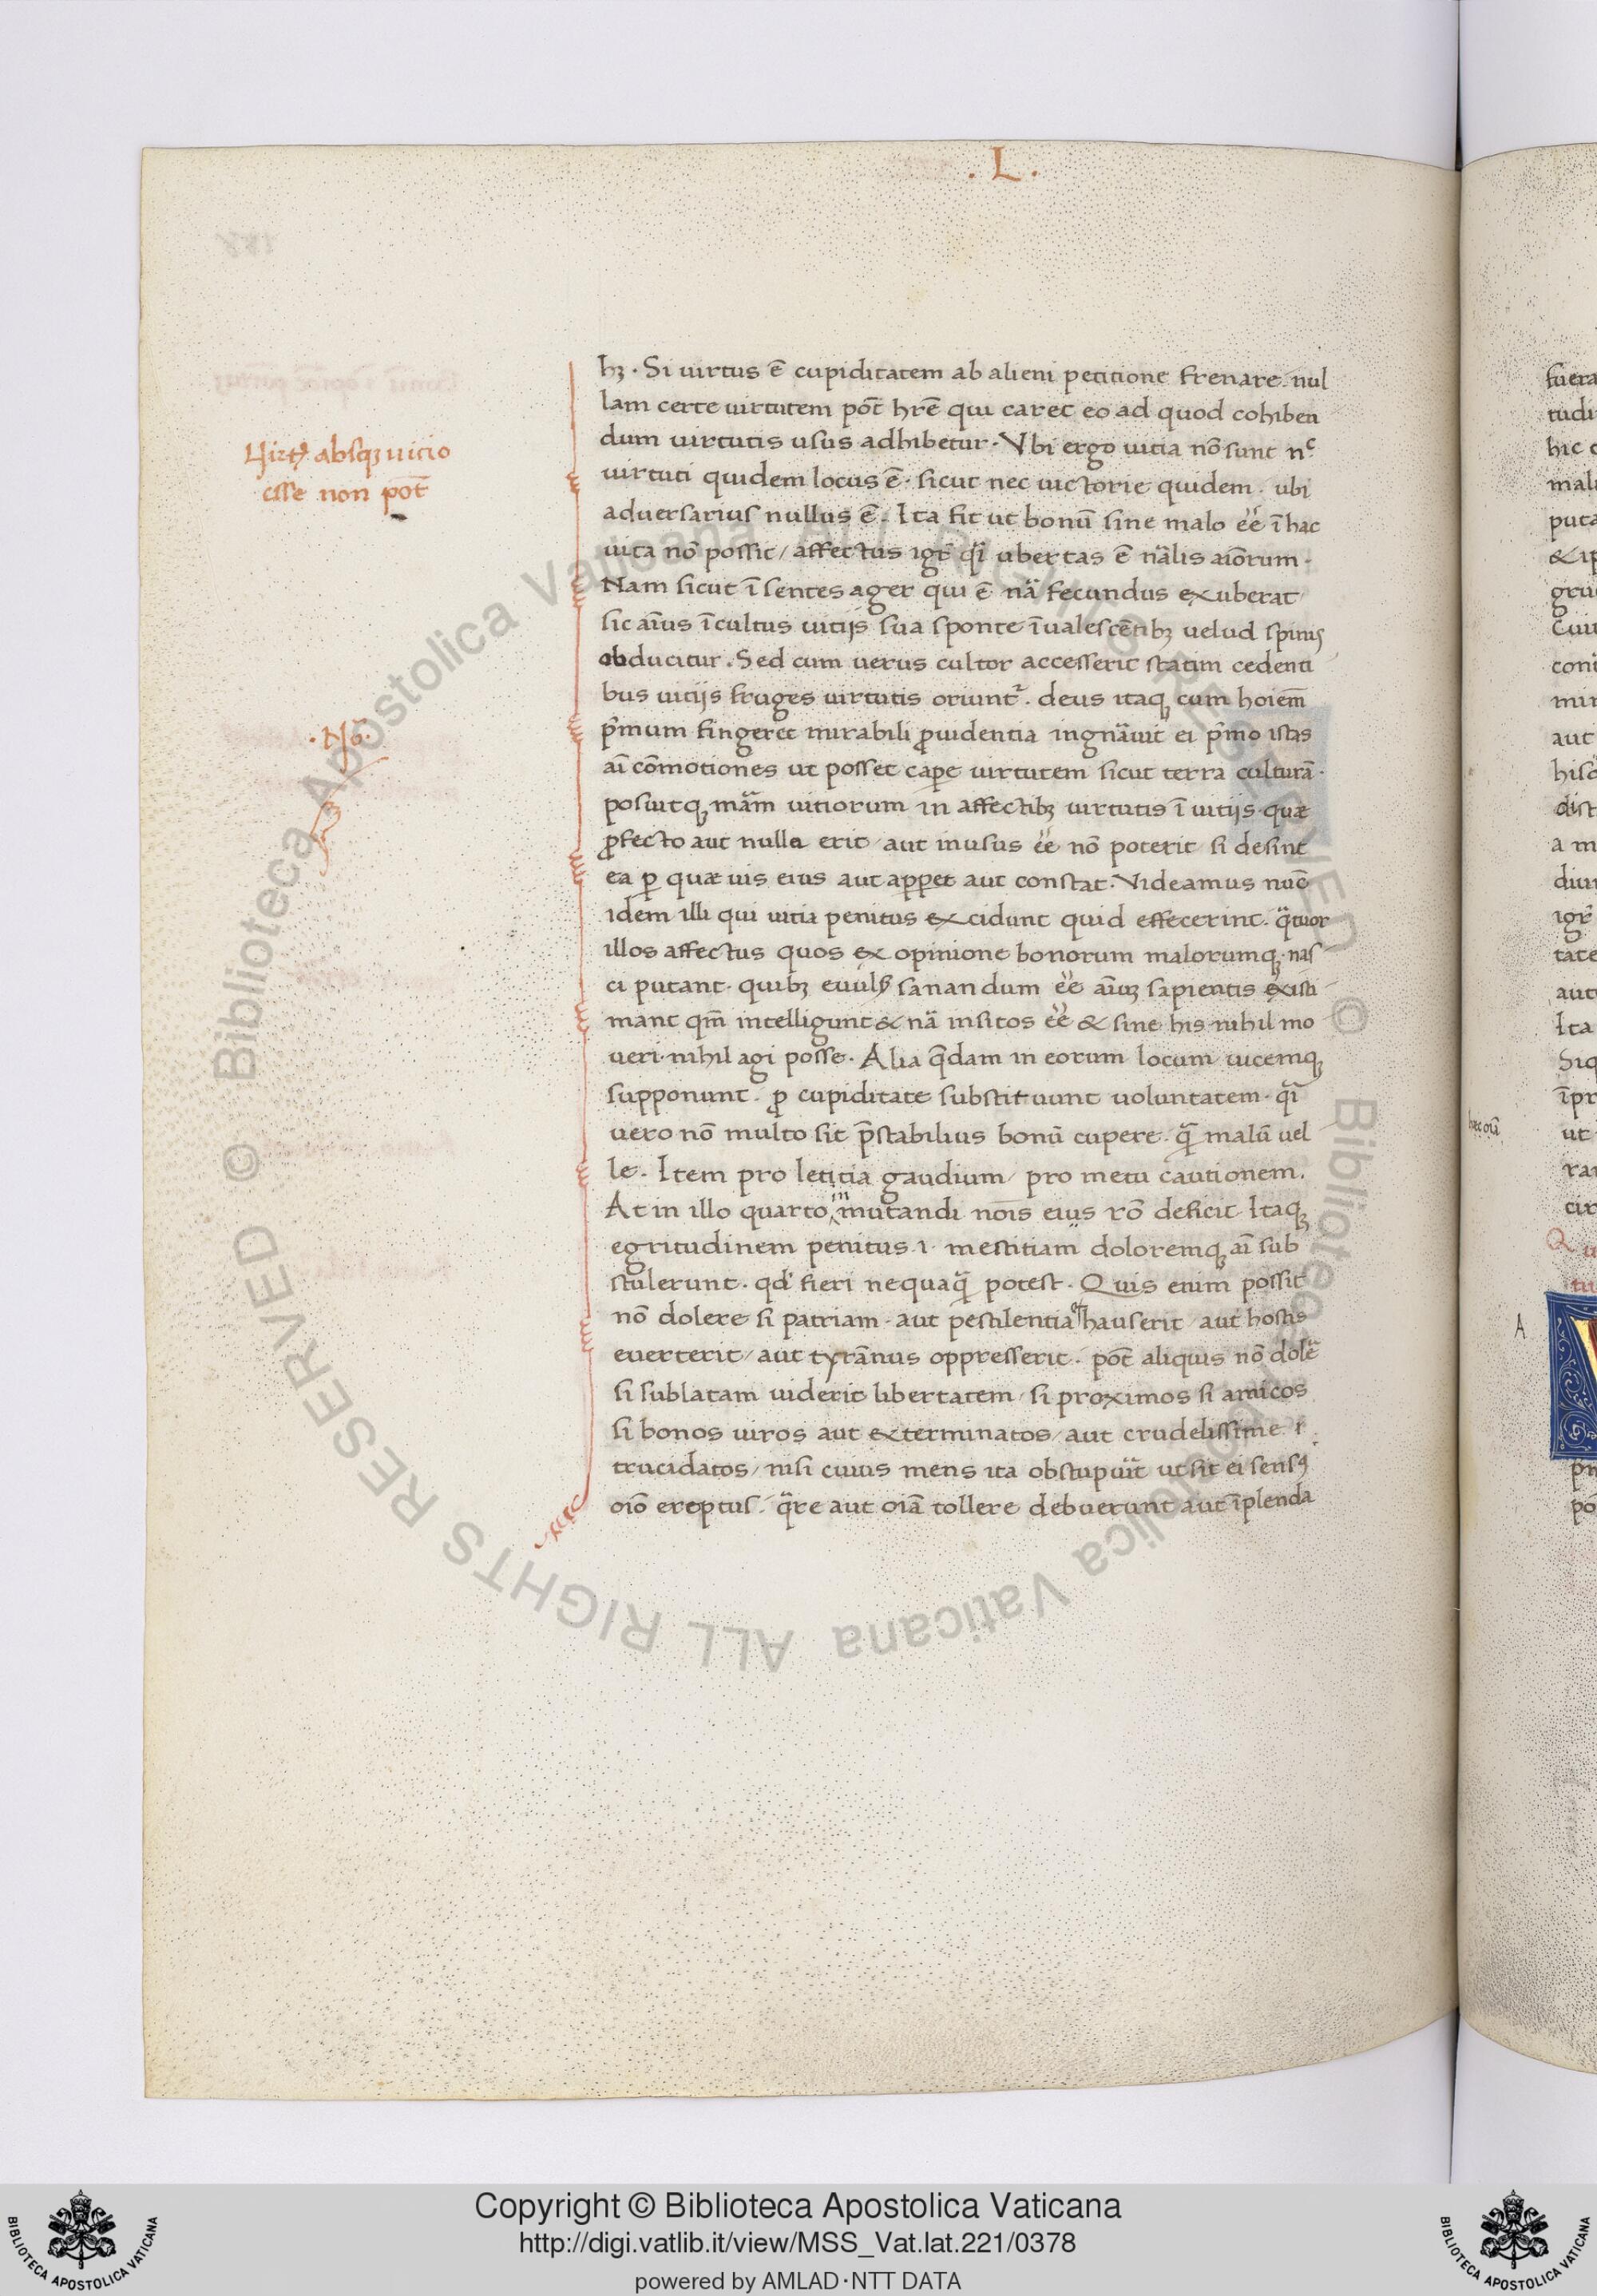 . L .
hꝫ · Si uirtus ē cupiditatem ab alieni petitione frenare · nul
lam certe uirtutem pot̄ hr̄e qui caret eo ad quod cohiben
dum uirtutis usus adhibetur · Vbi ergo uitia nō sunt nᶜ
uirtuti quidem locus ē · sicut nec uictorie quidem · ubi
aduersarius nullus ē · Ita fit ut bonū sine malo eē ī hac
uita nō possit / affectus igr̄ qi ubertas ē nālis aīorum ·
Nam sicut ī sentes ager qui ē nā fecundus exuberat /
sic aīus īcultus uitijs sua sponte īualescētibꝫ uelud spinis
obducitur · Sed cum uerus cultor accesserit statim cedenti
bus uitijs fruges uirtutis oriunt᷑ · deus itaqꝫ cum hoiem̄
p̄mum fingeret mirabili ꝓuidentia ingnāuit ei p̄mo istas
aī cōmotiones ut posset caꝑe uirtutem sicut terra culturā ·
posuitqꝫ mām uitiorum in affectibꝫ uirtutis ī uitijs · quæ
ꝓfecto aut nulla erit / aut inusus eē nō poterit si desint
ea ꝑ quæ uis eius aut apꝑet aut constat · Videamus nūc
idem illi qui uitia penitus excidunt quid effecerint · qᷓtuor
illos affectus quos ex opinione bonorum malorumqꝫ · nas
ci putant · quibꝫ euulsꝭ sanandum eē aīuꝫ sapientis existi
mant qm̄ intelligunt & nā insitos eē & sine his nihil mo
ueri · nihil agi posse · Alia qᷓdam in eorum locum uicemqꝫ
supponunt · ꝓ cupiditate substituunt uoluntatem · qᷓi
uero nō multo sit p̄stabilius bonū cupere · qᷓ malū uel
le · Item pro letitia gaudium / pro metu cautionem ·
At in illo quarto in mutandi nōis eius rō deficit · Itaqꝫ
egritudinem penitus · i · mestitiam doloremqꝫ aī sub
stulerunt · qd̓ fieri nequaqᷓ potest · Quis enim possit
nō dolere si patriam · aut pestilentia hauserit / aut hostis
euerterit / aut tyrānus oppresserit · pot̄ aliquis nō dolē
si sublatam uiderit libertatem · si proximos si amicos
si bonos uiros aut exterminatos / aut crudelissime
trucidatos / nisi cuius mens ita obstupuīt ut sit ei sensꝰ
oīo ereptus · qᷓre aut oīa tollere debuerunt aut īplenda
Uirtꝰ absqꝫ uitio
esse non pot̄
· Nō ·
A
Copyright © Biblioteca Apostolica Vaticana
http://digi.vatlib.it/view/MSS_Vat.lat.221/0378
powered by AMLAD·NTT DATA